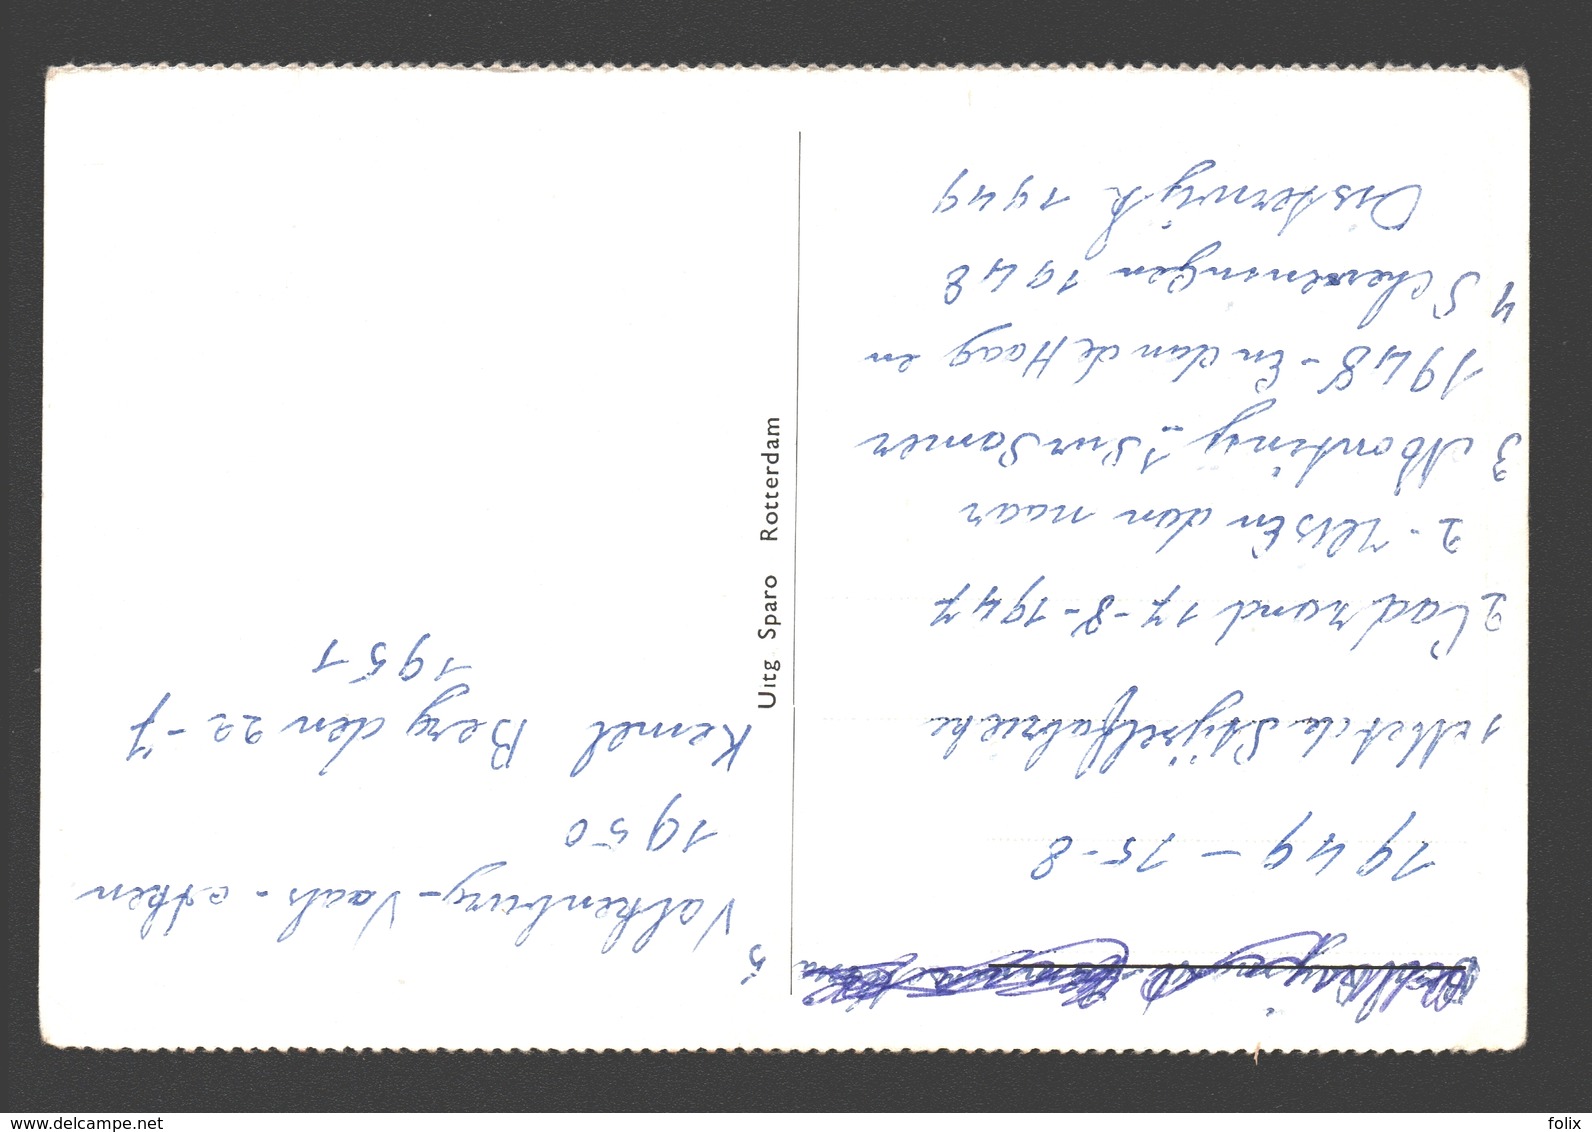 1949 - 15-8
1 Met de Stijfselfabrieke
2 Cadzand 17-8-1947
2- En dan naar
3 Montiny Sur Samer
1948 - En dan de Haag en
4 Scheveningen 1948
Oisterwijk 1949
5 Valkenburg - Vaals - Aken
1950
Kemel Berg den 22-7
1951
Uitg Sparo Rotterdam
www.delcampe.net
folix